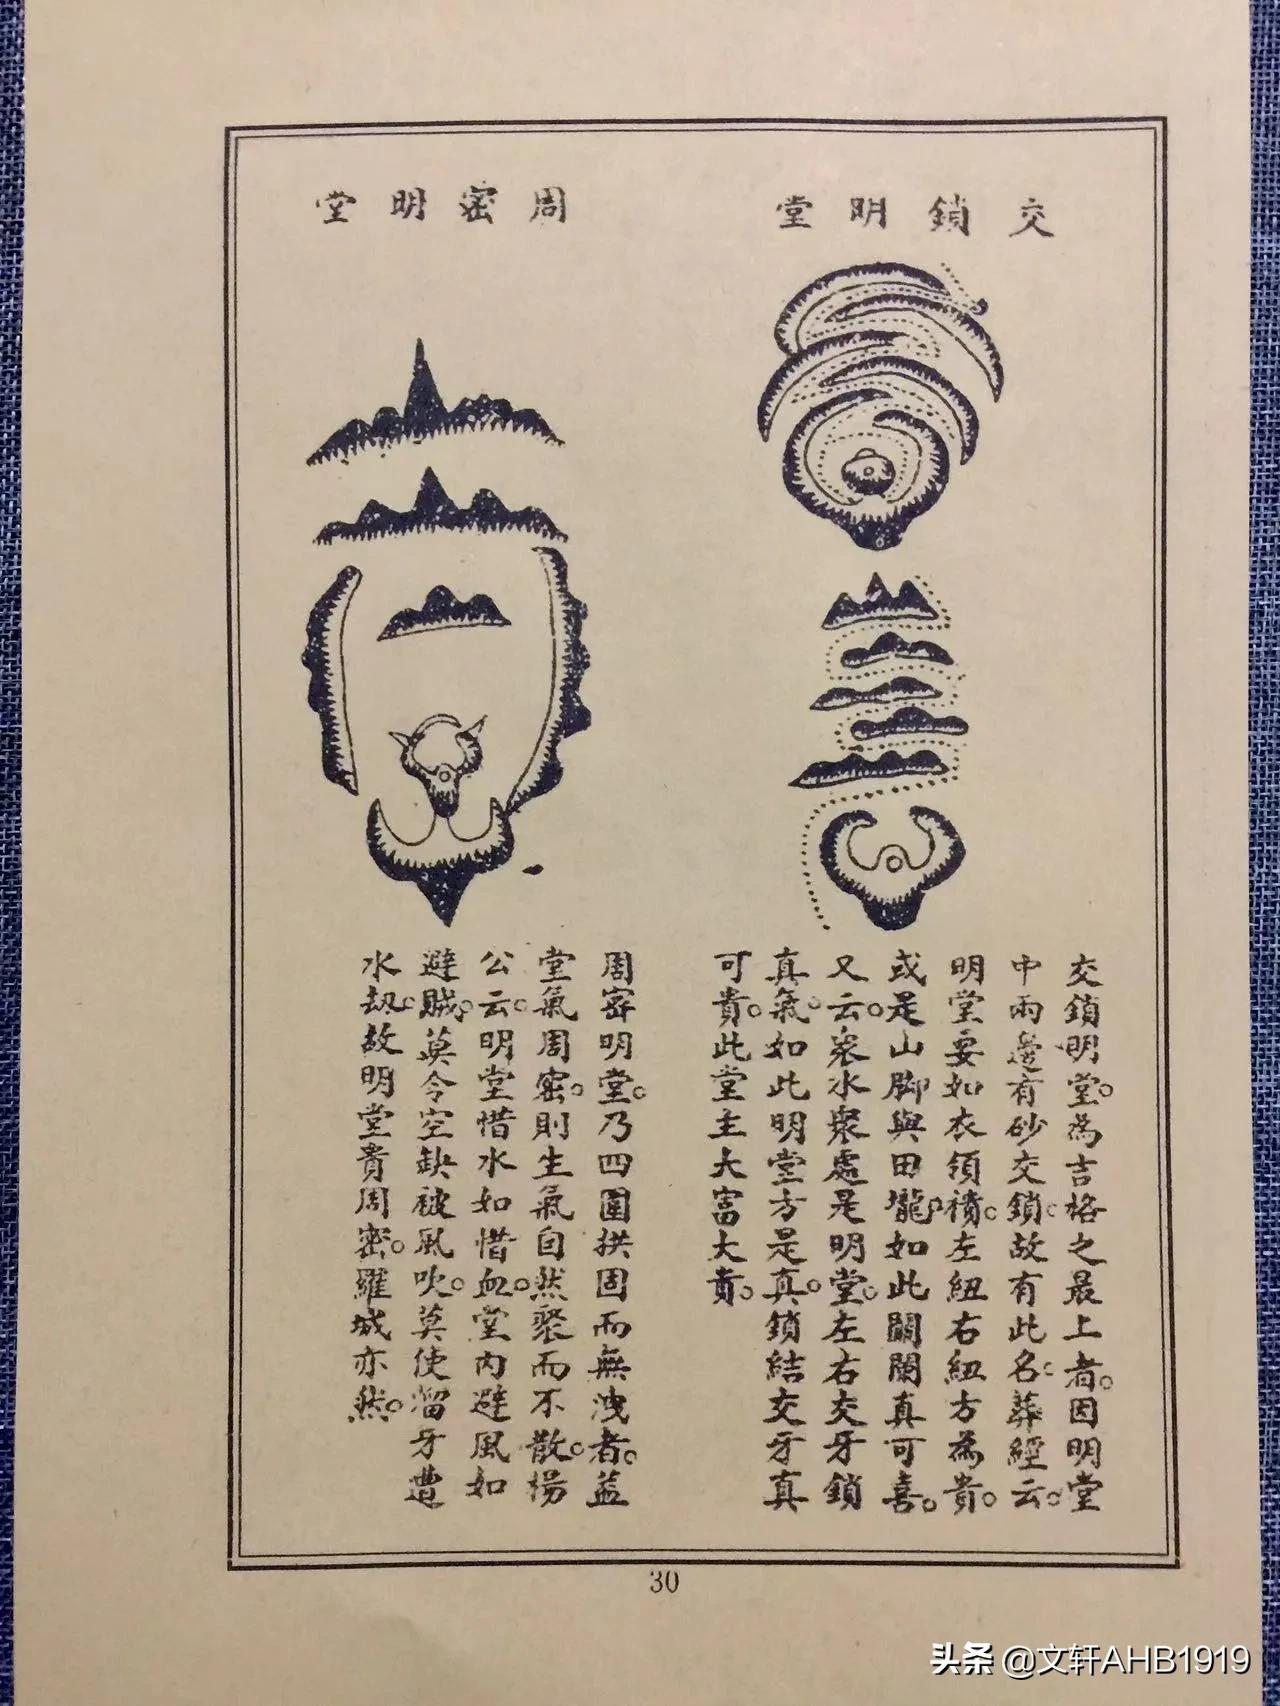 交鎖明堂
交鎖明堂。為吉格之最上者。因明堂
中兩邊有砂交鎖。故有此名。葬經云。
明堂要如衣領襀。左紐右紐方為貴。
或是山脚與田壠。如此關闌真可喜。
又云。衆水聚處是明堂。左右交牙鎖
真氣。如此明堂方是真。鎖結交牙真
可貴。此堂主大富大貴。
周密明堂
周密明堂。乃四圍拱固而無洩者。蓋
堂氣周密。則生氣自然聚而不散。楊
公云。明堂惜水如惜血。堂內避風如
避賊。莫令空缺被風吹。莫使溜牙遭
水刼。故明堂貴周密。羅城亦然。
30
头条 @文轩AHB1919